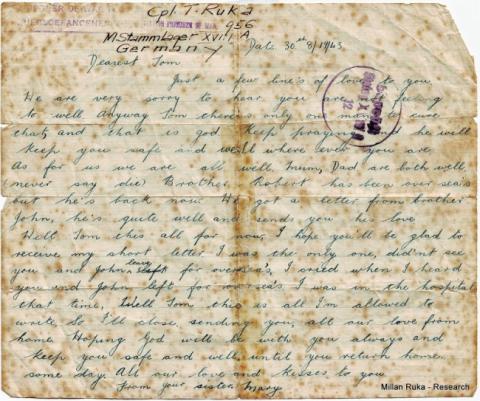 Cpl T. Ruka
KRIEGSGEFANGENEN
956
M.Stammlager XVIII A
Germany
Date 30th 8/1943
Dearest Tom
Just a few line's of love to you
We are very sorry to hear you are feeling
to well. Anyway Tom there's only one man to cure
that, and that is god. Keep praying and he will
keep you safe and well where ever you are
As for us we are all well. Mum, Dad are both well
(never say die) Brother Robert has been over seas
but he's back now. We got a letter from brother
John, he's quite well and sends you his love
Well Tom this all for now, I hope you'll be glad to
receive my short letter I was the only one, didn't see
you and John, leave for overseas, I cried when I heard
you and John left for overseas. I was in the hospital
that time, Well Tom this is all I'm allowed to
write So I'll close, sending you, all our love from
home. Hoping God will be with you always and
keep you safe and well, until you return home
some day. All our love and kisses to you
From your sister Mary
Millan Ruka - Research